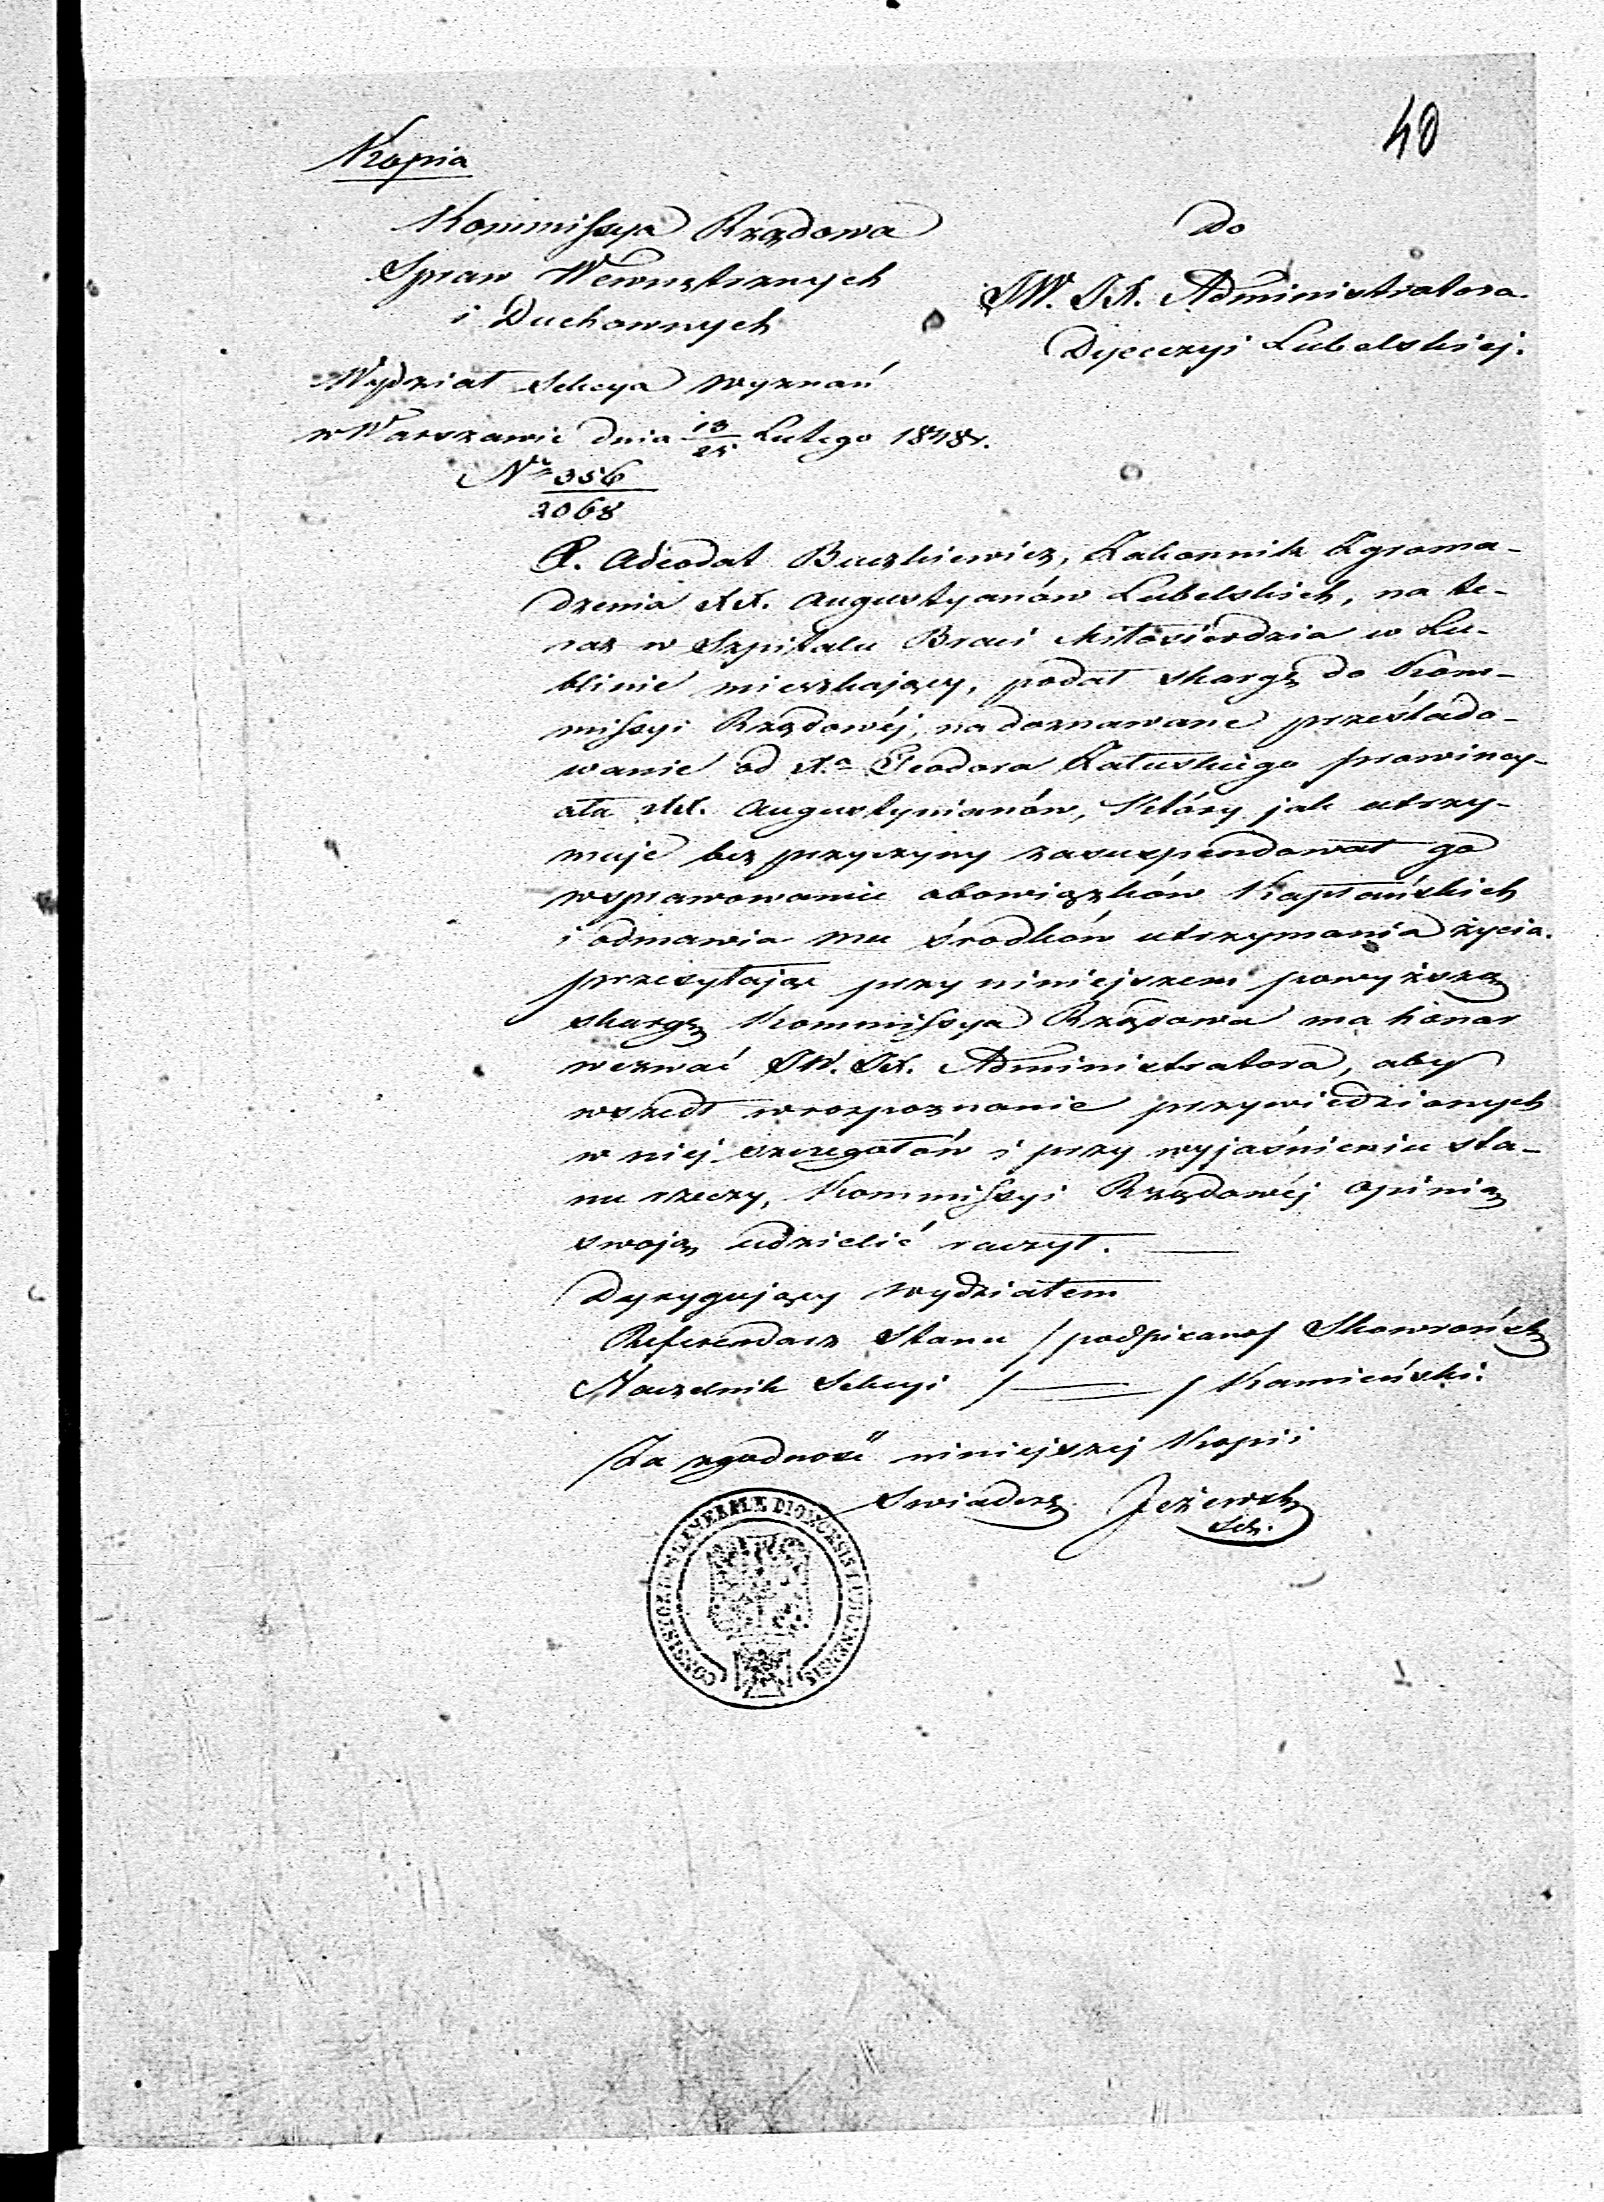 40
Kopia
Kommissya Rządowa
Spraw Wewnętrznych
i Duchownych
Do
JW. JX. Administratora
Dyecezyi Lubelskiej.
Wydział Sekcya Wyznań
w Warszawie dnia 13/25 Lutego 1848 r.
Nr 356
2068
X. Adeodat Buczkiewicz, Zakonnik Zgroma-
dzenia XX. Augustyanów Lubelskich, na te-
raz w Szpitalu Braci Miłosierdzia w Lu-
blinie mieszkający, podał skargę do Kom-
missyi Rządowéj, na doznawane prześlado-
wanie od Xa Teodora Załuskiego prowincy-
ała XX. Augustynianów, który jak utrzy-
muje bez przyczyny zasuspendował go
w sprawowaniu obowiązków Kapłańskich
i odmawia mu środków utrzymania życia.
przesyłając przy niniejszem powyższą
skargę Kommissya Rządowa ma honor
wezwać JW. JX. Administratora, aby
wszedł w rozpoznanie przywiedzionych
w niej szczegółów i przy wyjaśnieniu sta-
nu rzeczy, Kommissyi Rządowéj opinię
swoją udzielić raczył.
Dyrygujący Wydziałem
Referendarz Stanu /podpisano/ Skowroński
Naczelnik Sekcyi / — / Kamieński.
Za zgodność niniejszej Kopii
Swiadczę Jeżewski
Sek.
CONSISTORIUM GENERALE DIOECESIS LUBLINENSIS